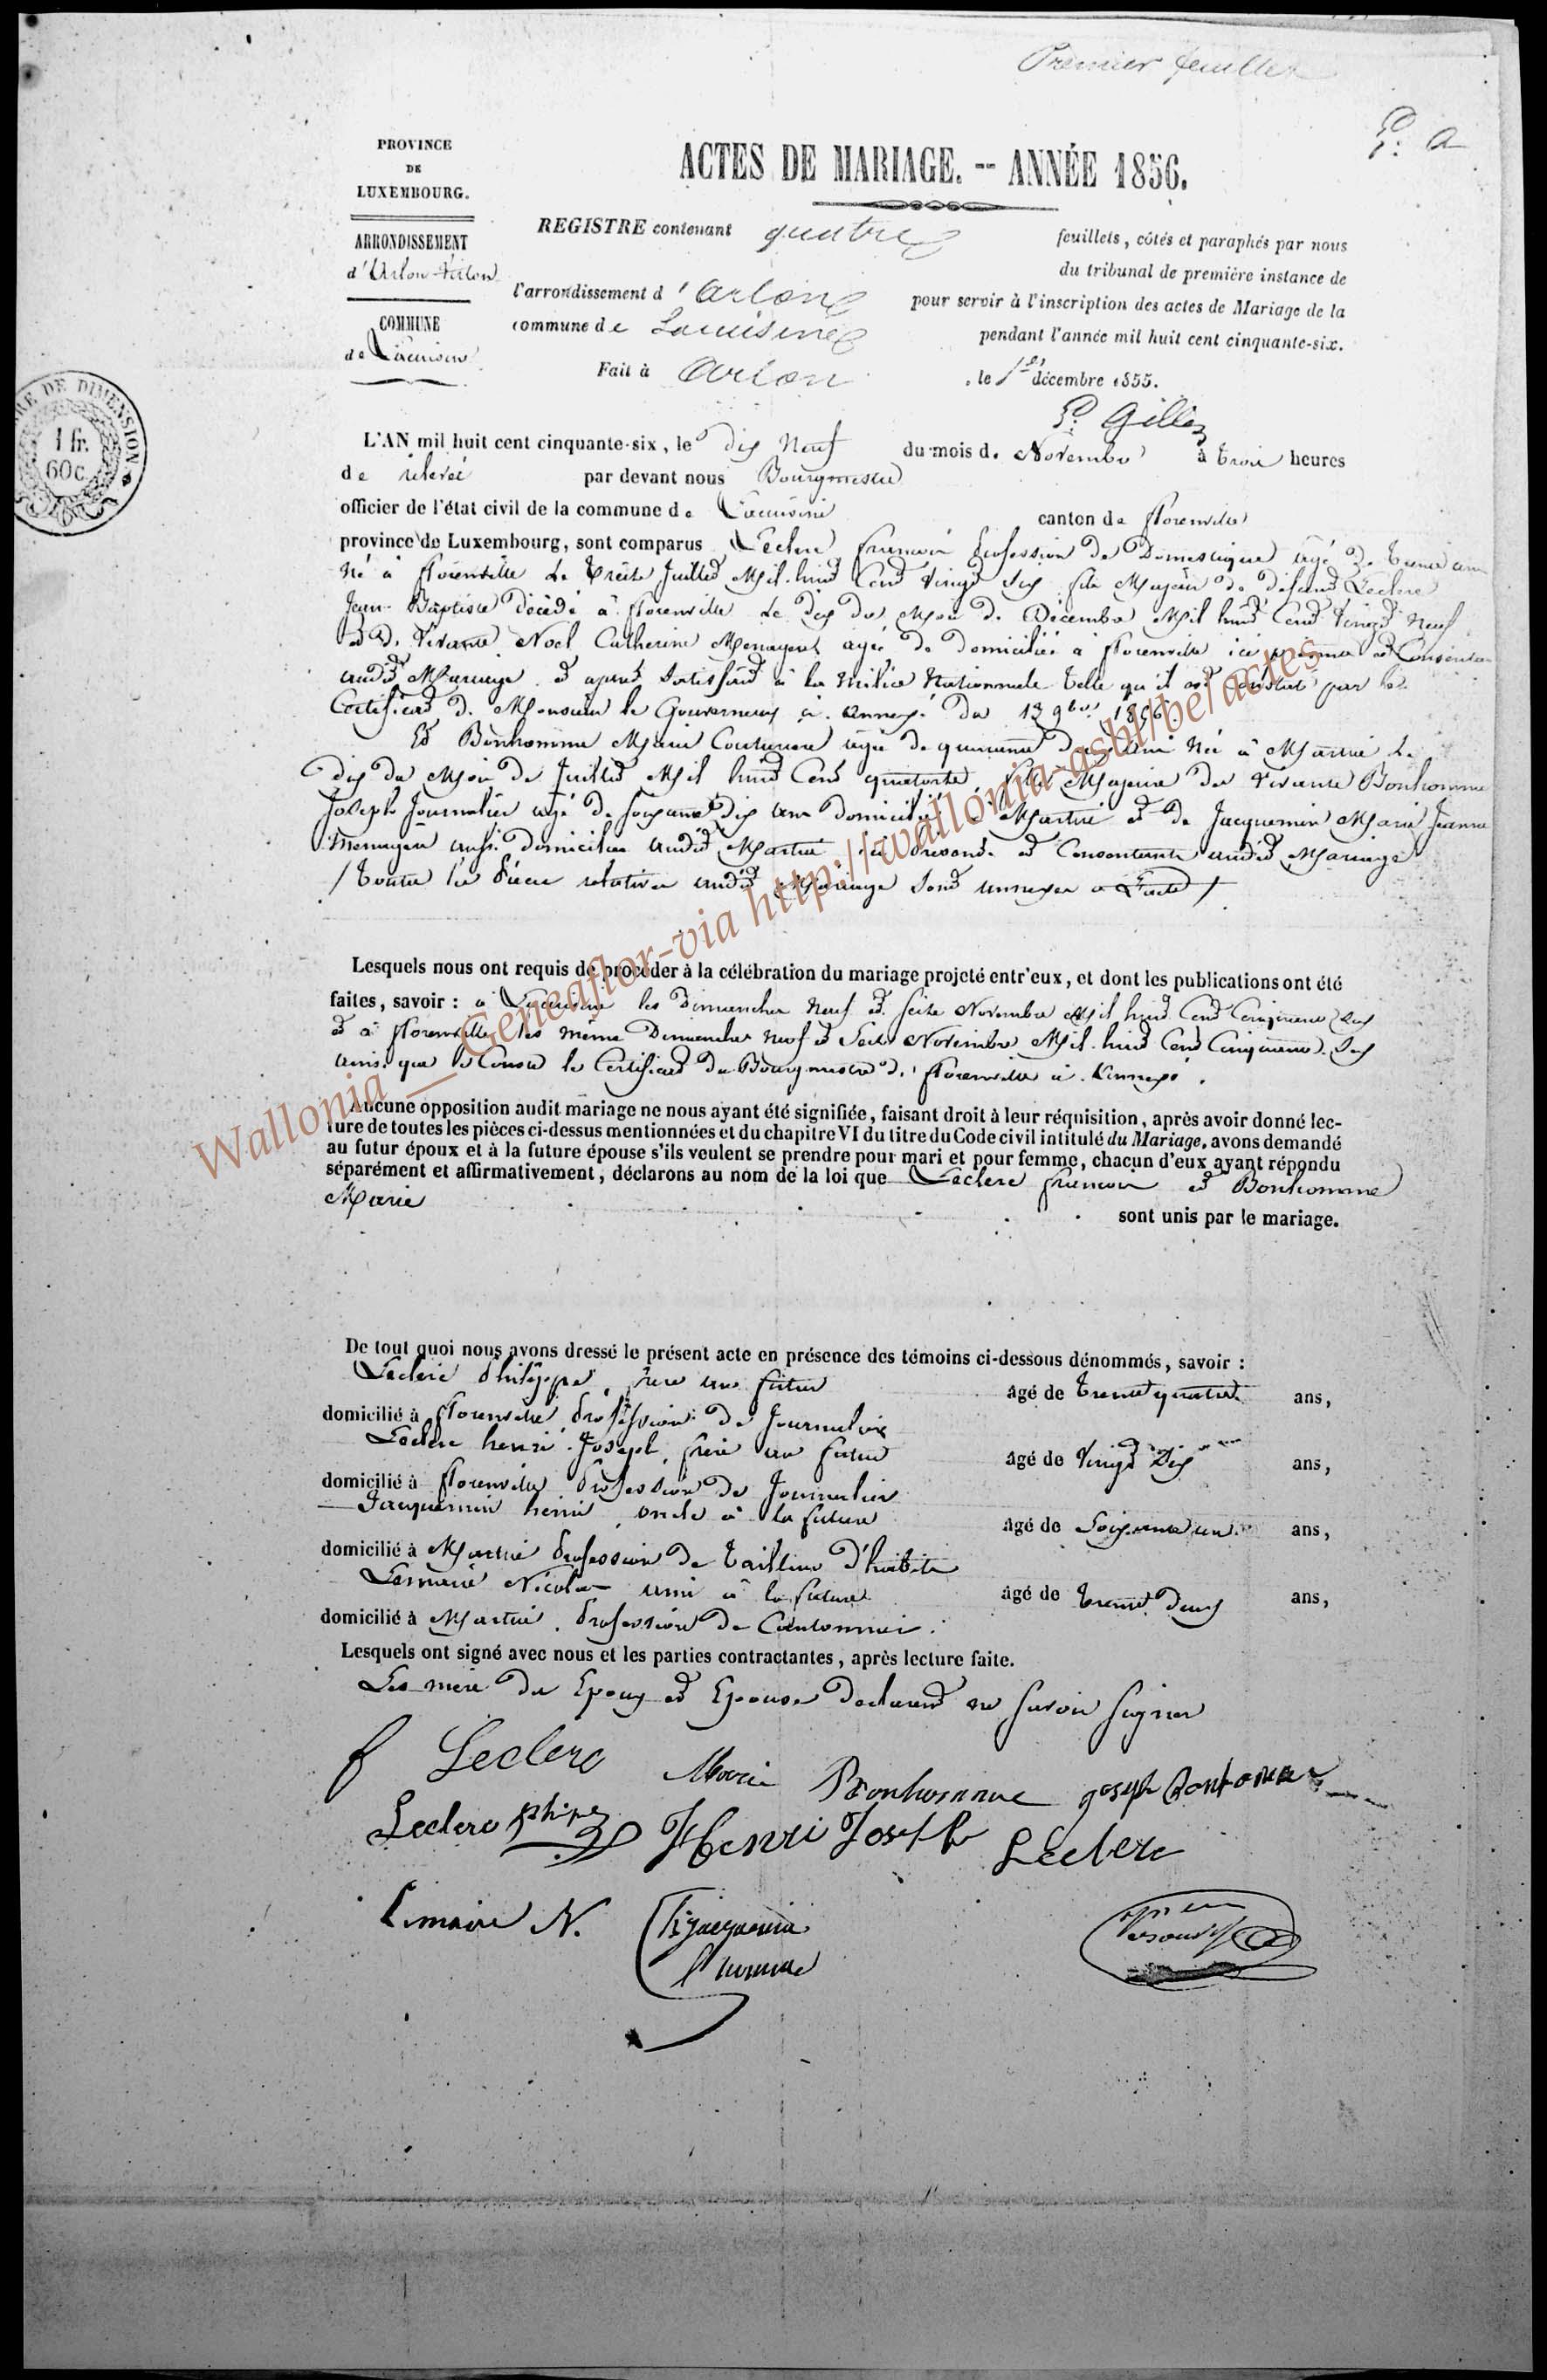 Premier feuillet
P. a
PROVINCE
DE
LUXEMBOURG.
ACTES DE MARIAGE. -- ANNÉE 1856.
ARRONDISSEMENT
d'Arlon-Virton
COMMUNE
de Lacuisine
REGISTRE contenant quatre feuillets, côtés et paraphés par nous
du tribunal de première instance de
l'arrondissement d'Arlon pour servir à l'inscription des actes de Mariage de la
commune de Lacuisine pendant l'année mil huit cent cinquante-six.
Fait à Arlon, le 1er décembre 1855.
P. Gilles
RE DE DIMENSION
1 fr.
60c
L'AN mil huit cent cinquante-six, le dix Neuf du mois de Novembre à trois heures
de relevée par devant nous Bourgmestre
officier de l'état civil de la commune de Lacuisine canton de florenville
province de Luxembourg, sont comparus Leclerc françois profession de Domestique agé de trente ans
Né à florenville le treize Juillet Mil huit Cent Vingt Six fils Majeur de défunt Leclerc
Jean Baptiste décédé à florenville le dix du Mois de Décembre Mil huit Cent Vingt Neuf
et de Vivante Noel Catherine Menagere agée de domiciliée à florenville ici présente et Consentante
audit Mariage et ayant Satisfait à la Milice Nationale telle qu'il est constaté par le
Certificat de Monsieur le Gouverneur ci annexé du 13 9bre 1856
Et Bonhomme Marie Couturiere agée de quarante deux ans Née à Martué le
dix du Mois de Juillet Mil huit Cent quatorze fille Majeure de Vivants Bonhomme
Joseph Journalier agé de soixante dix ans domicilié à Martué et de Jacquemin Marie Jeanne
Menagere aussi domiciliée audit Martué ici présents et Consentants audit Mariage
/ toutes les pièces relatives audit Mariage sont annexées a l'acte /
Lesquels nous ont requis de procéder à la célébration du mariage projeté entr'eux, et dont les publications ont été
faites, savoir : a Lacuisine les Dimanches Neuf et Seize Novembre Mil huit Cent Cinquante Six
et à florenville les même Dimanches neuf et Seize Novembre Mil huit Cent Cinquante Six
ainsi que le Conste le Certificat du Bourgmestre de florenville ci Annexé.
Aucune opposition audit mariage ne nous ayant été signifiée, faisant droit à leur réquisition, après avoir donné lec-
ture de toutes les pièces ci-dessus mentionnées et du chapitre VI du titre du Code civil intitulé du Mariage, avons demandé
au futur époux et à la future épouse s'ils veulent se prendre pour mari et pour femme, chacun d'eux ayant répondu
séparément et affirmativement, déclarons au nom de la loi que Leclerc françois et Bonhomme
Marie
sont unis par le mariage.
De tout quoi nous avons dressé le présent acte en présence des témoins ci-dessous dénommés, savoir :
Leclerc Philippe, frere au futur âgé de trente quatre ans,
domicilié à florenville profession de Journalier
Leclerc henri Joseph, frère au futur âgé de Vingt Dix ans,
domicilié à florenville Profession de Journalier
Jacquemin henri, oncle à la future âgé de Soixante un ans,
domicilié à Martué profession de tailleur d'habits
Lemaire Nicolas ami à la future âgé de trente Deux ans,
domicilié à Martué, profession de Cantonnier.
Lesquels ont signé avec nous et les parties contractantes, après lecture faite.
Les mère des Epoux et Epouse declarent ne savoir signer
f Leclerc Marie Bonhomme joseph Bonhomme
Leclerc Henri Joseph Leclerc
Lemaire N.
Wallonia__Geneaflor-via http://wallonia-asbl/be/actes